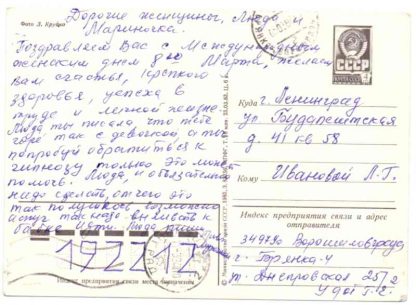 Фото Э. Круцко
Дорогие женщины, Люда и
Мариночка.
Поздравляем Вас с Международным
женским днем 8го Марта, желаем
вам счастья, крепкого
здоровья, успеха в
труде и личной жизни.
Люда ты писала, что тебе
горе так с девочкой, а ты
попробуй обратиться к
гипнозу только это может
помочь. Люда, и обязательно
надо сделать, от чего это
так получилось возможно
испуг так надо
бабке идти. Люда пиши
192212
СССР
Куда г. Ленинград
ул Будапештская
д. 41 кв 58
Кому Ивановой Л. Г.
Индекс предприятия связи и адрес
отправителя
349790 Ворошиловград
г. Брянка-4
ул. Днепровская 25/2
Удот Г. Г.
Индекс предприятия связи места назначения